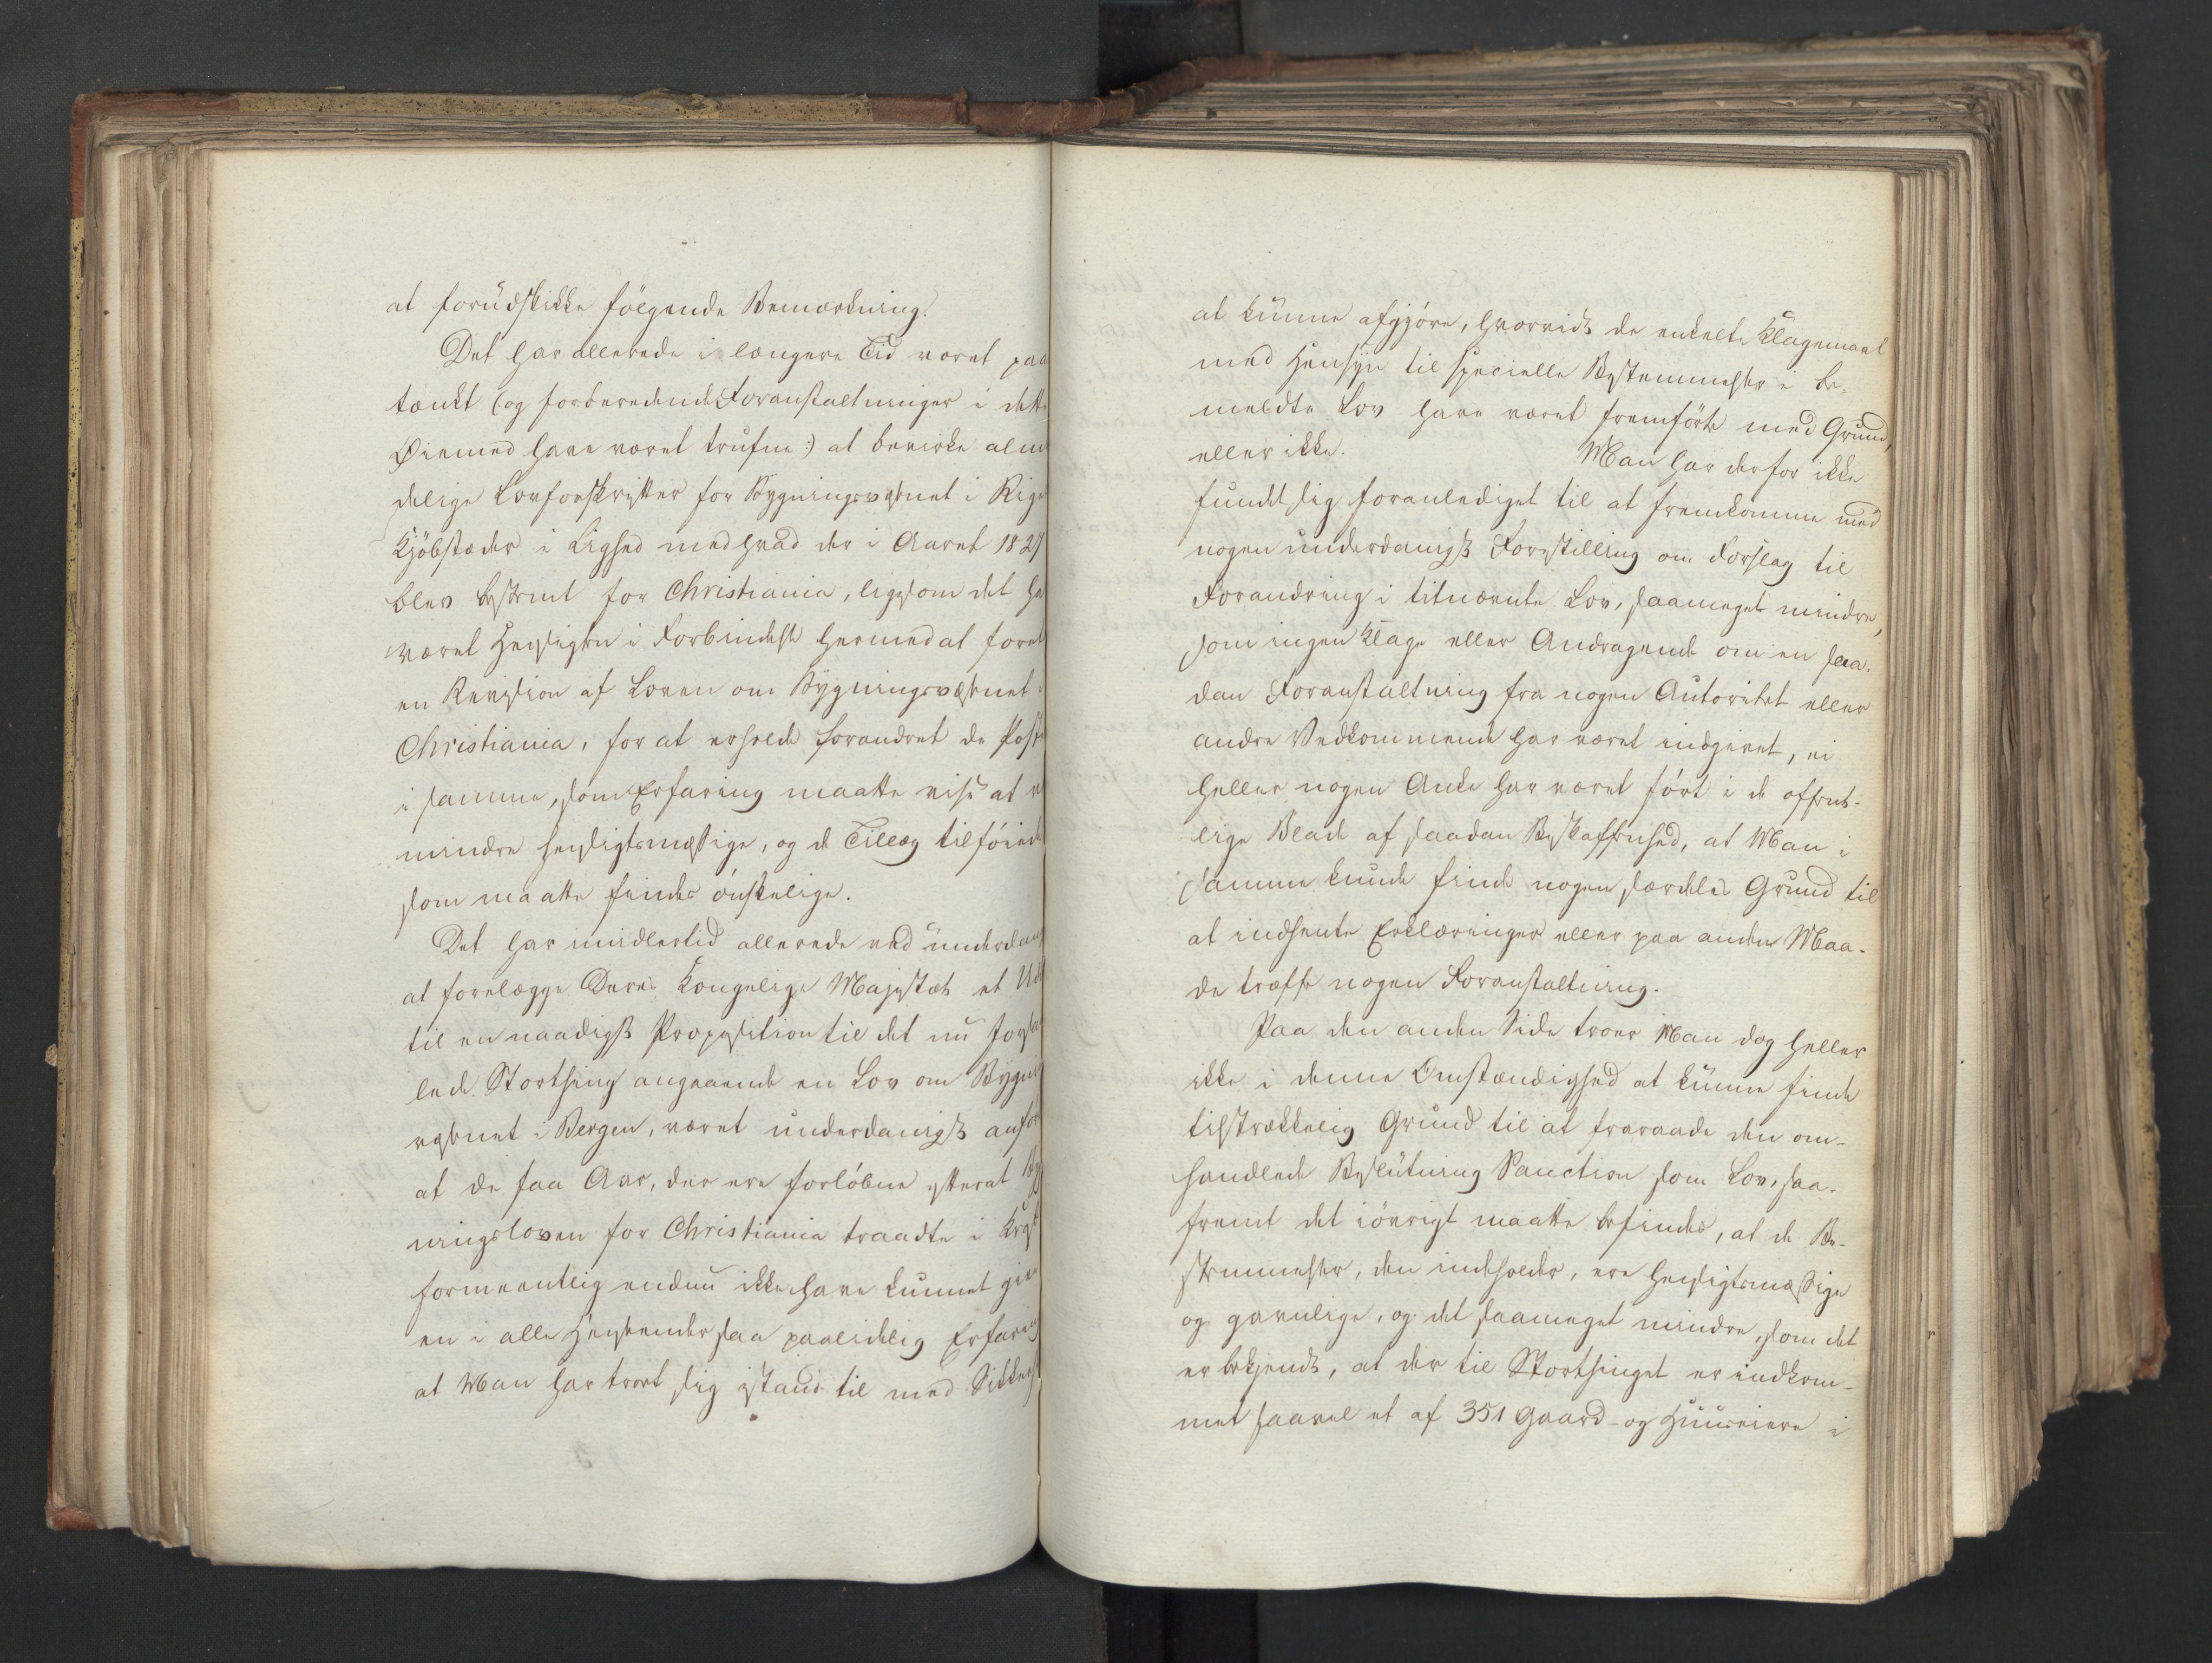 at forudskikke følgende Bemærkning.
Det har allerede i længere Tid været paa
tænkt (:og forberedende Foranstaltninger i dette
Øiemed have været trufne:) at bevirke alm
delige Lovforskrifter for Bygningsvæsnet i Rige
Kjøbstæder i Lighed med hvad der i Aaret 1827
blev bestemt for Christiania, ligesom det ha
været Hensigten i Forbindelse hermed at foret
en Revision af Loven om Bygningsvæsnet i
Christiania, for at erholde forandret de Poster
i samme, som Erfaring maatte vise at v
mindre hensigtsmæssige, og de Tillæg tilføiede
som maatte findes ønskelige.
Det har imidlertid allerede ved underdan
at forelægge Deres Kongelige Majestæt et Ud
til en naadigst Proposition til det nu forsa
lede Storthing angaaende en Lov om Bygni
væsnet i Bergen, været underdanigst anfør
at de faa Aar, der ere forløbne efterat By
ningsloven for Christiania traadte i Kraft
formeentlig endnu ikke have kunnet give
en i alle Henseender saa paalidelig Erfaring
at Man har troet sig istand til med Sikkerh
at kunne afgjøre, hvorvidt de enkelte Klagemaal
med Hensyn til specielle Bestemmelser i be-
meldte Lov have været fremførte med Grund,
eller ikke. Man har derfor ikke
fundet sig foranlediget til at fremkomme med
nogen underdanigst Forestilling om Forslag til
Forandring i titnævnte Lov, saameget mindre,
som ingen Klage eller Andragende om en saa-
dan Foranstaltning fra nogen Autoritet eller
andre Vedkommende har været indgivet, ei
heller nogen Anke har været ført i de offent-
lige Blade af saadan Beskaffenhed, at Man i
samme kunde finde nogen særdeles Grund til
at indhente Erklæringer eller paa anden Maa-
de træffe nogen Foranstaltning.
Paa den anden Side troer Man dog heller
ikke i denne Omstændighed at kunne finde
tilstrækkelig Grund til at fraraade den om-
handlede Beslutning Sanction som Lov, saa-
fremt det iøvrigt maatte befindes, at de Be-
stemmelser, den indeholder, ere hensigtsmæssige
og gavnlige, og det saameget mindre, som det
er bekjendt, at der til Storthinget er indkom-
met saavel et af 351 Gaard- og Huuseiere i